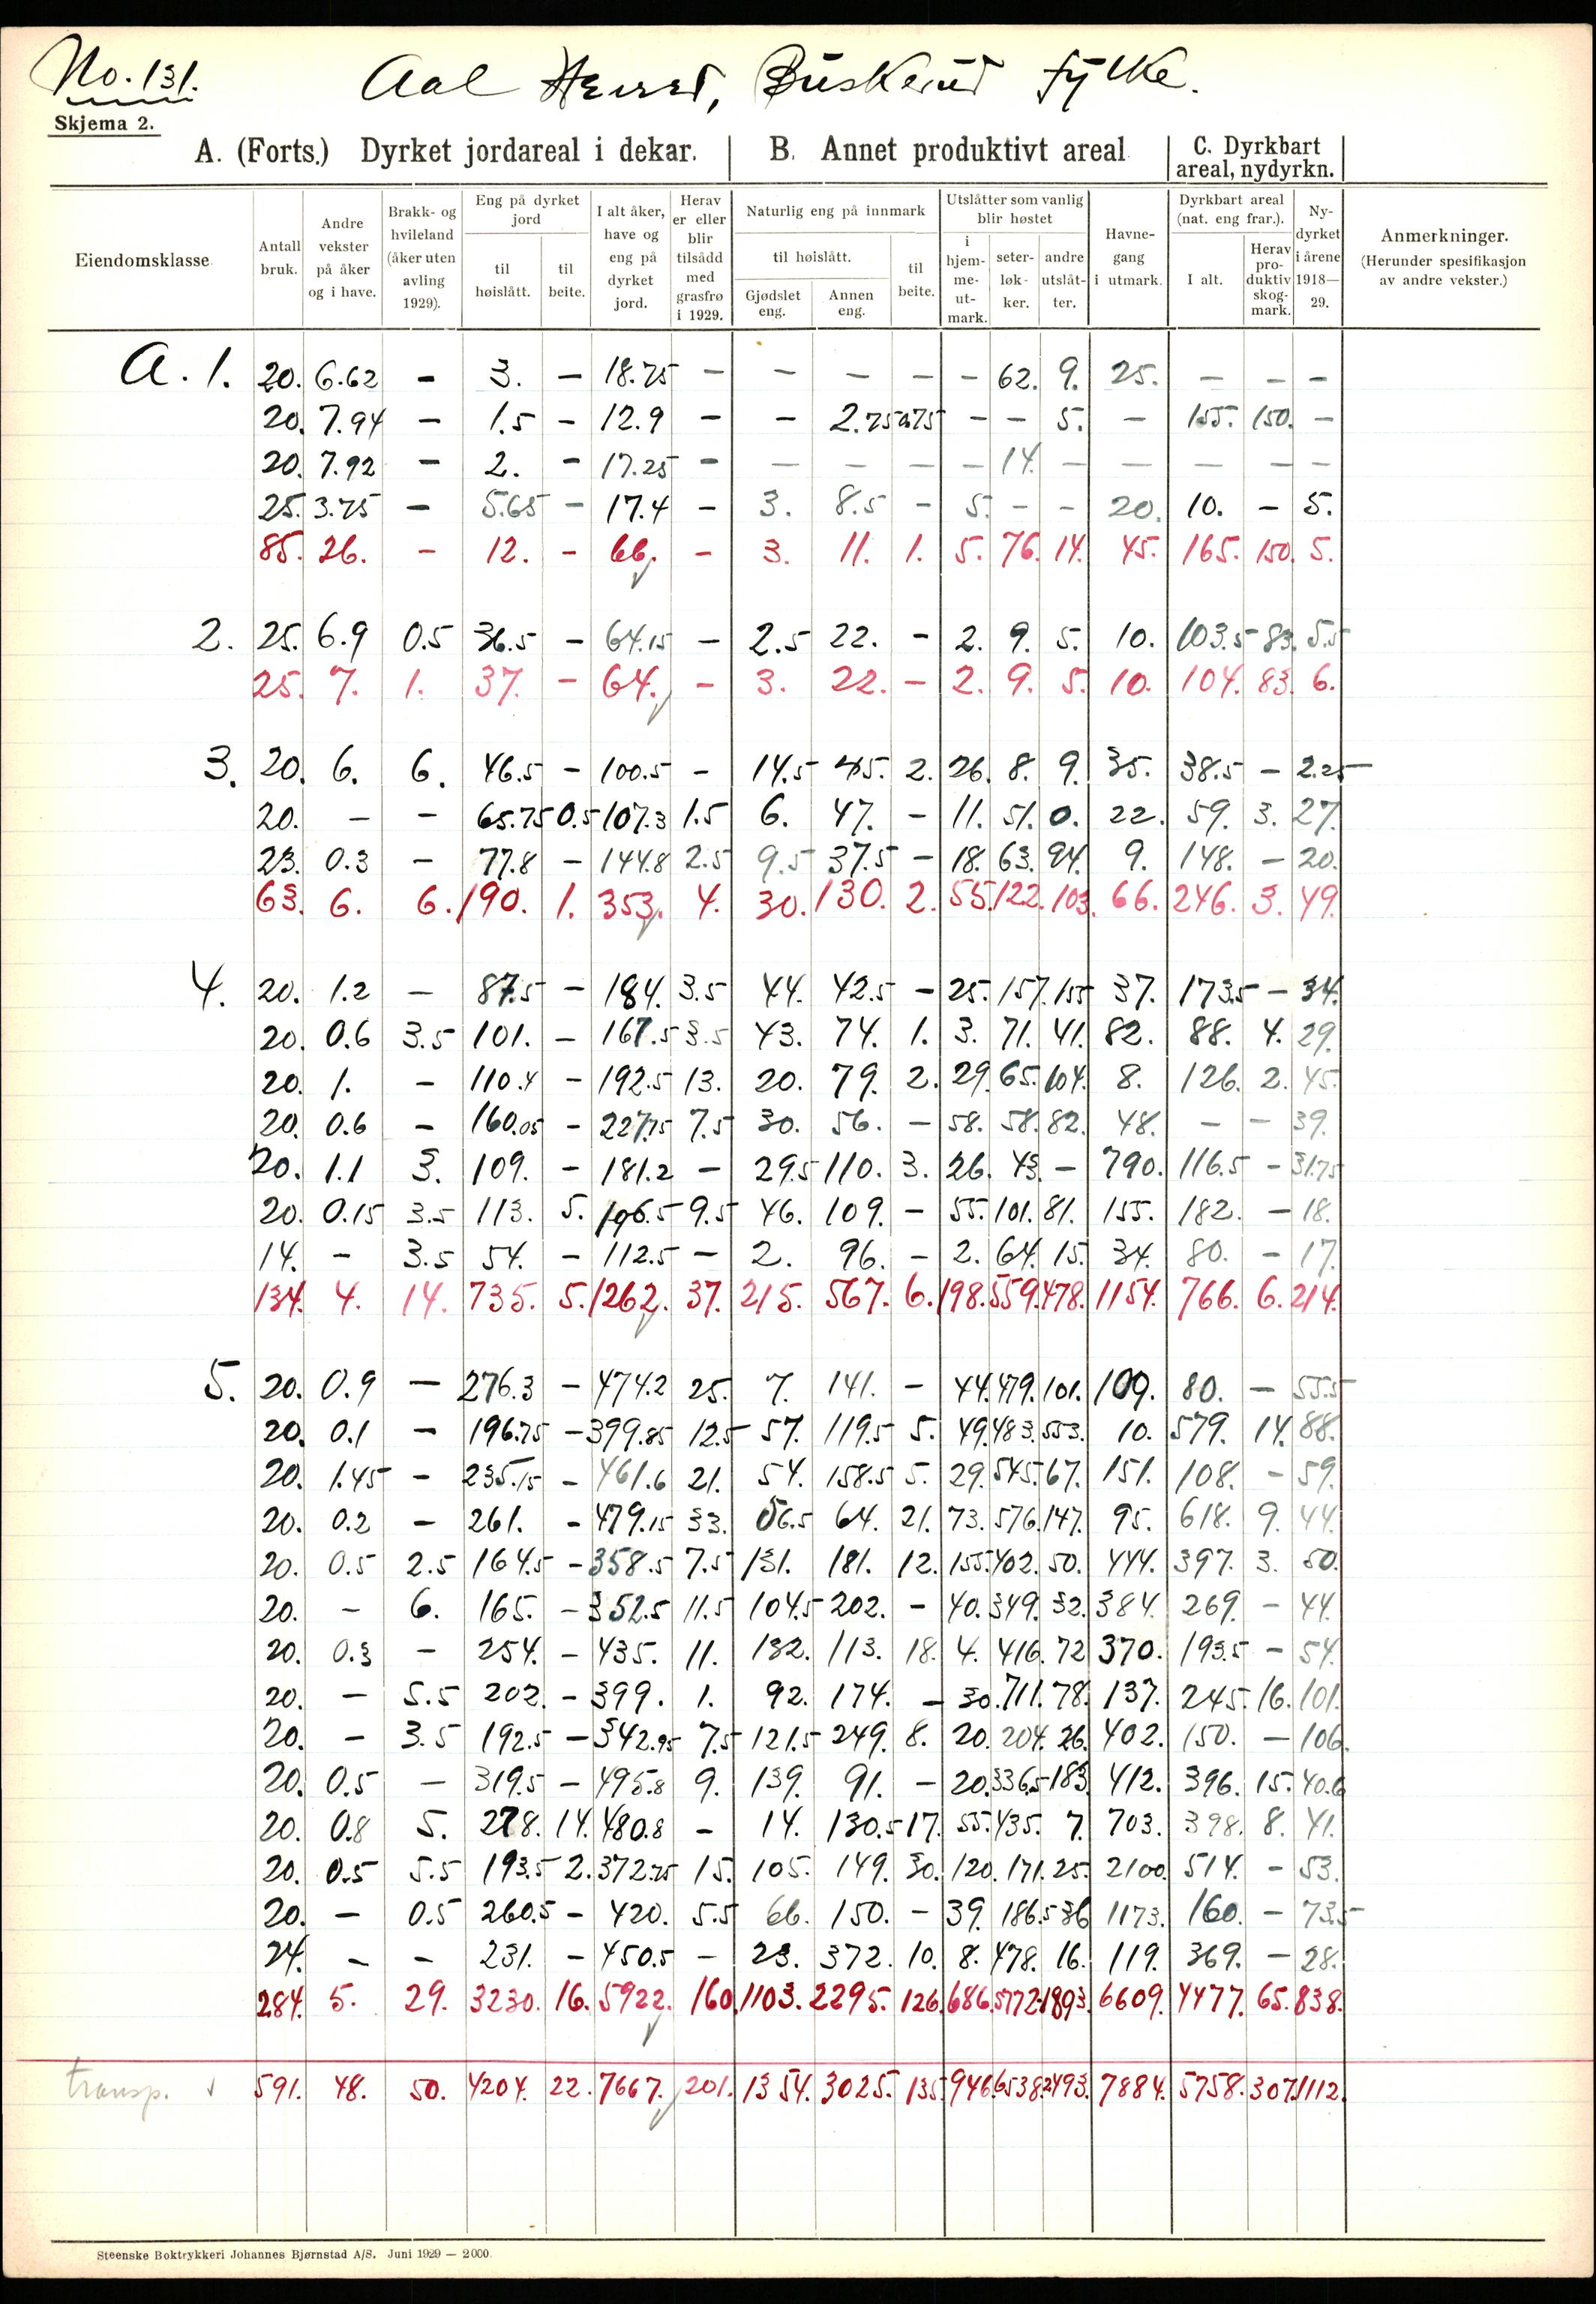 No. 131.
Aal Herred, Buskerud fylke.
Skjema 2.
A. (Forts.) Dyrket jordareal i dekar. B. Annet produktivt areal C. Dyrkbart areal, nydyrkn.
Eiendomsklasse.
Antall bruk.
Andre vekster på åker og i have.
Brakk- og hvileland (åker uten avling 1929).
Eng på dyrket jord
til høislått.
til beite.
I alt åker, have og eng på dyrket jord.
Herav er eller blir tilsådd med grasfrø i 1929.
Naturlig eng på innmark
til høislått.
Gjødslet eng.
Annen eng.
til beite.
Utslåtter som vanlig blir høstet
i hjem-me-ut-mark.
seter-løk-ker.
andre utslåt-ter.
Havne-gang i utmark.
Dyrkbart areal (nat. eng frar.).
I alt.
Herav pro-duktiv skog-mark.
Ny-dyrket i årene 1918—29.
Anmerkninger. (Herunder spesifikasjon av andre vekster.)
A. 1. 20. 6.62 - 3. - 18.75 - - - - - 62. 9. 25. - - -
20. 7.94 - 1.5 - 12.9 - - 2.75 0.75 - - 5. - 155. 150. -
20. 7.92 - 2. - 17.25 - - - - - 14. - - - - -
25. 3.75 - 5.65 - 17.4 - 3. 8.5 - 5. - - 20. 10. - 5.
85. 26. - 12. - 66. - 3. 11. 1. 5. 76. 14. 45. 165. 150. 5.
2. 25. 6.9 0.5 36.5 - 64.15 - 2.5 22. - 2. 9. 5. 10. 103.5 83. 5.5
25. 7. 1. 37. - 64. - 3. 22. - 2. 9. 5. 10. 104. 83. 6.
3. 20. 6. 6. 46.5 - 100.5 - 14.5 45. 2. 26. 8. 9. 35. 38.5 - 2.25
20. - - 65.75 0.5 107.3 1.5 6. 47. - 11. 51. 0. 22. 59. 3. 27.
23. 0.3 - 77.8 - 144.8 2.5 9.5 37.5 - 18. 63. 94. 9. 148. - 20.
63. 6. 6. 190. 1. 353. 4. 30. 130. 2. 55. 122. 103. 66. 246. 3. 49.
4. 20. 1.2 - 87.5 - 184. 3.5 44. 42.5 - 25. 157. 155 37. 173.5 - 34.
20. 0.6 3.5 101. - 167.5 3.5 43. 74. 1. 3. 71. 41. 82. 88. 4. 29.
20. 1. - 110.4 - 192.5 13. 20. 79. 2. 29. 65. 104. 8. 126. 2. 45.
20. 0.6 - 160.05 - 227.75 7.5 30. 56. - 58. 58. 82. 48. - - 39.
20. 1.1 3. 109. - 181.2 - 29.5 110. 3. 26. 43. - 790. 116.5 - 31.75
20. 0.15 3.5 113. 5. 196.5 9.5 46. 109. - 55. 101. 81. 155. 182. - 18.
14. - 3.5 54. - 112.5 - 2. 96. - 2. 64. 15. 34. 80. - 17.
134. 4. 14. 735. 5. 1262. 37. 215. 567. 6. 198. 559. 478. 1154. 766. 6. 214.
5. 20. 0.9 - 276.3 - 474.2 25. 7. 141. - 44. 479. 101. 109. 80. - 55.5
20. 0.1 - 196.75 - 399.85 12.5 57. 119.5 5. 49. 483. 553. 10. 579. 14. 88.
20. 1.45 - 235.15 - 461.6 21. 54. 158.5 5. 29. 545. 67. 151. 108. - 59.
20. 0.2 - 261. - 479.15 33. 56.5 64. 21. 73. 576. 147. 95. 618. 9. 44.
20. 0.5 2.5 164.5 - 358.5 7.5 131. 181. 12. 155. 402. 50. 444. 397. 3. 50.
20. - 6. 165. - 352.5 11.5 104.5 202. - 40. 349. 32. 384. 269. - 44.
20. 0.3 - 254. - 435. 11. 132. 113. 18. 4. 416. 72 370. 193.5 - 54.
20. - 5.5 202. - 399. 1. 92. 174. - 30. 711. 78. 137. 245. 16. 101.
20. - 3.5 192.5 - 342.95 7.5 121.5 249. 8. 20. 204. 26. 402. 150. - 106.
20. 0.5 - 319.5 - 495.8 9. 139. 91. - 20. 336.5 183. 412. 396. 15. 40.6
20. 0.8 5. 278. 14. 480.8 - 14. 130.5 17. 55. 435. 7. 703. 398. 8. 41.
20. 0.5 5.5 193.5 2. 372.75 15. 105. 149. 30. 120. 171. 25. 2100. 514. - 53.
20. - 0.5 260.5 - 420. 5.5 66. 150. - 39. 186.5 36 1173. 160. - 73.5
24. - - 231. - 450.5 - 23. 372. 10. 8. 478. 16. 119. 369. - 28.
284. 5. 29. 3230. 16. 5922. 160. 1103. 2295. 126. 686. 5772. 1893. 6609. 4477. 65. 838.
transp. 591. 48. 50. 4204. 22. 7667. 201. 1354. 3025. 135. 946. 6538. 2493. 7884. 5758. 307. 1112.
Steenske Boktrykkeri Johannes Bjørnstad A/S. Juni 1929 — 2000.